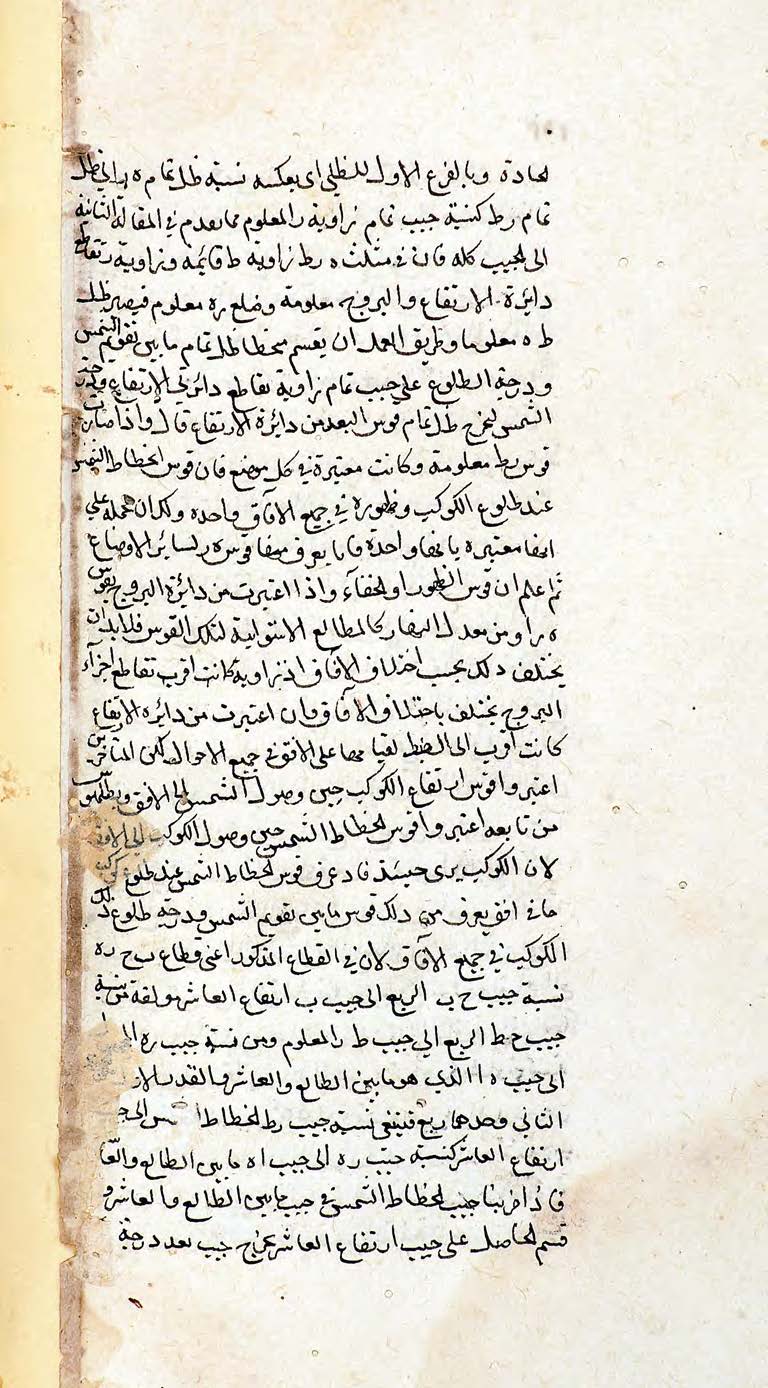 لحادة وبالفرع الاول للظلي اى بعكسه نسبة ظل تمام ه ر الى ظل
تمام رط كنسبة جيب تمام زاوية ر المعلوم مما تقدم في المقالة الثانية
الى الجيب كله فان في مثلث ه رط زاوية ط قائمه وزاوية ر تقاطع
دايرة الارتفاع والبروج معلومة وضلع ره معلوم فيصير ظل
ط ه معلوما وطريق العمل ان يقسم منحطا ظل تمام ما بين تقويم الشمس
ودرجة الطلوع على جيب تمام زاوية تقاطع دائرتي الارتفاع
الشمس ليخرج ظل تمام قوس البعد من دايرة الارتفاع قال واذا صارت
قوس رط معلومة وكانت معتبرة في كل موضع فان قوس انحطاط الشمس
عند طلوع الكوكب وظهوره في جميع الافاق واحده
معتبره واحدة يعرف قوس ه ر لسائر الاوضاع
ثم اعلم ان قوس الظهور او الخفآء واذا اعتبرت من دائرة البروج
ه ر او من معدل النهار كالمطالع الاستوائية لتلك القوس فلابد ان
يختلف ذلك بحسب اختلاف الافاق كانت اقرب تقاطع اجزآء
البروج تختلف باختلاف الافاق وان اعتبرت من دايره الارتفاع
كانت اقرب الى الضبط لقيامها على الافق في جميع الاحوال لكن
اعتبروا قوس ارتفاع الكوكب حين وصول الشمس الى الافق وبطلميوس
من تابعه اعتبروا قوس انحطاط الشمس حين وصول الكوكب الى الافق
لان الكوكب يرى حينئذ فاذ عرف قوس انحطاط الشمس عند طلوع كوكب
ما في افق يعرف من ذلك قوس ما بين تقويم الشمس ودرجة طلوع ذلك
الكوكب في جميع الافاق لان في القطاع المذكور اعنى قطاع ب ح ره
نسبة جيب ح ب الربع الى جيب ب ا ارتفاع العاشر مولفة من نسبة
جيب ح ط الربع الى جيب ط ر المعلوم ومن نسبة جيب ره
الى جيب ه ا الذي هو ما بين الطالع والعاشر
الثاني وحدهما ربع فيبقى نسبة جيب رط انحطاط الى
ارتفاع العاشر كنسبة جيب ره الى جيب اه ما بين الطالع
فاذا ضربنا جيب انحطاط الشمس في جيب ما بين الطالع والعاشر و
قسم الحاصل على جيب ارتفاع العاشر يخرج جيب بعد درجة